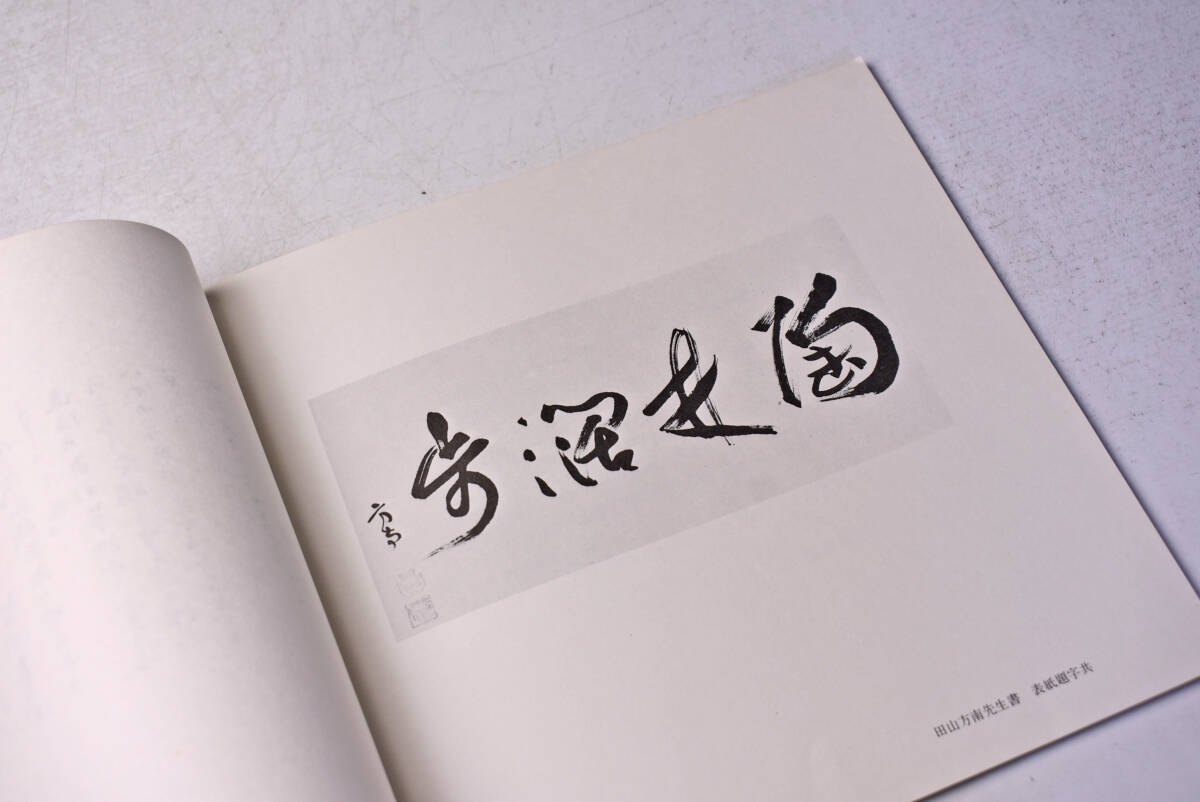 陶 濶歩
方南
田山方南先生書 表紙題字共